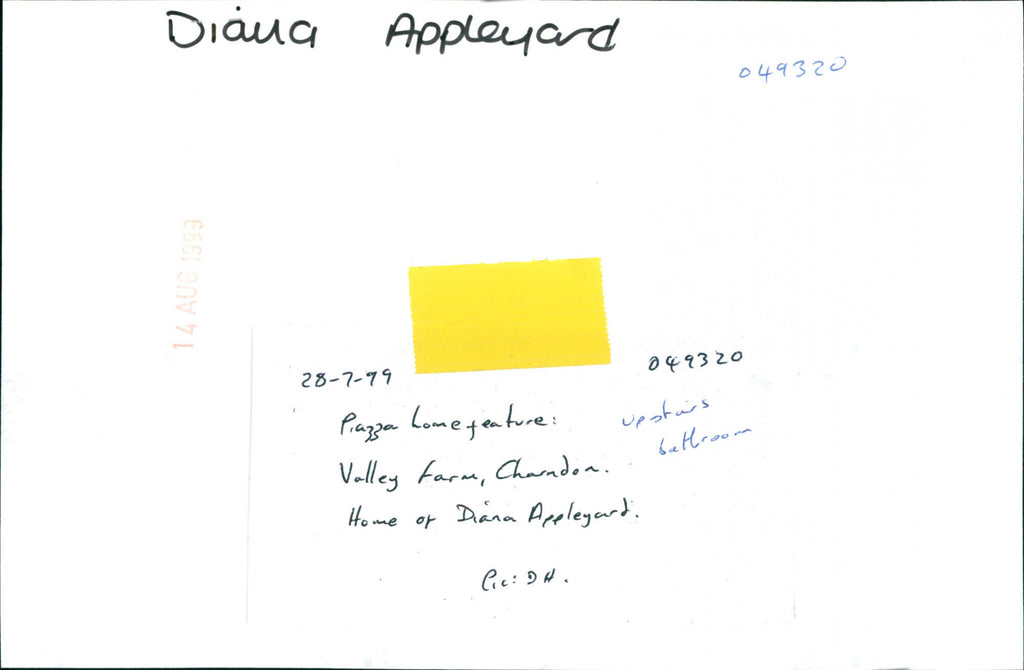 Diana Appleyard
049320
14 AUG 1999
28-7-99
049320
Piazza home feature:
upstairs
bathroom
Valley Farm, Charndon.
Home of Diana Appleyard.
Pic: DH.